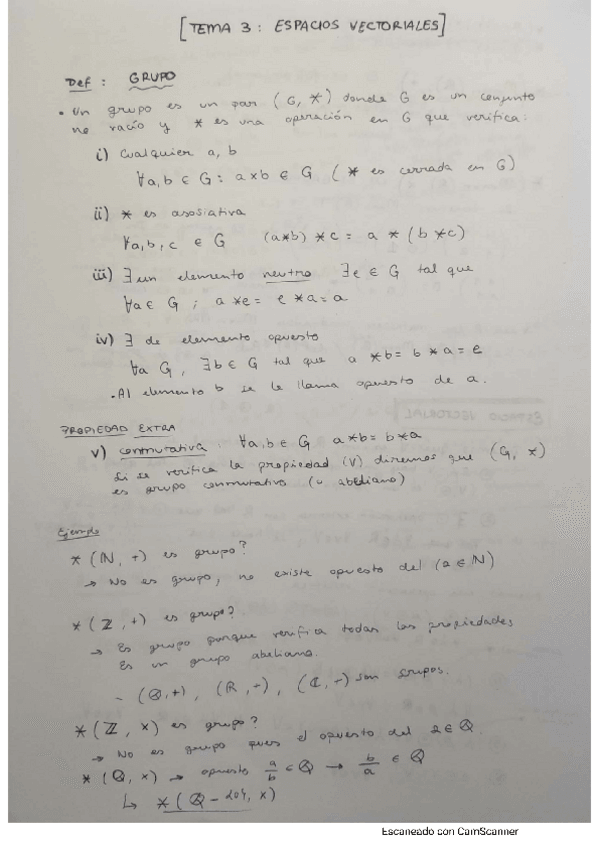 [TEMA 3: ESPACIOS VECTORIALES]
Def: GRUPO
• Un grupo es un par (G, *) donde G es un conjunto
no vacío y * es una operación en G que verifica:
i) Cualquier a, b
∀a,b ∈ G: a×b ∈ G (* es cerrada en G)
ii) * es asosiativa
∀a,b,c ∈ G (a*b)*c = a*(b*c)
iii) ∃ un elemento neutro ∃e ∈ G tal que
∀a∈ G ; a*e= e*a=a
iv) ∃ de elemento opuesto
∀a G, ∃b∈ G tal que a*b= b*a=e
• Al elemento b se le llama opuesto de a.
PROPIEDAD EXTRA
v) conmutativa: ∀a,b∈ G a*b= b*a
Si se verifica la propiedad (V) diremos que (G, ×)
es grupo conmutativo (o abeliano)
Ejemplo
* (ℕ, +) es grupo?
→ No es grupo, no existe opuesto del (2 ∈ ℕ)
* (ℤ, +) es grupo?
→ Es grupo porque verifica todas las propiedades
Es un grupo abeliano.
- (ℚ,+), (ℝ,+), (ℂ,+) son grupos.
* (ℤ, ×) es grupo?
→ No es grupo pues el opuesto del 2∈ ℚ.
* (ℚ, ×) → opuesto a/b ∈ ℚ → b/a ∈ ℚ
↳ *(ℚ - {0}, ×)
Escaneado con CamScanner